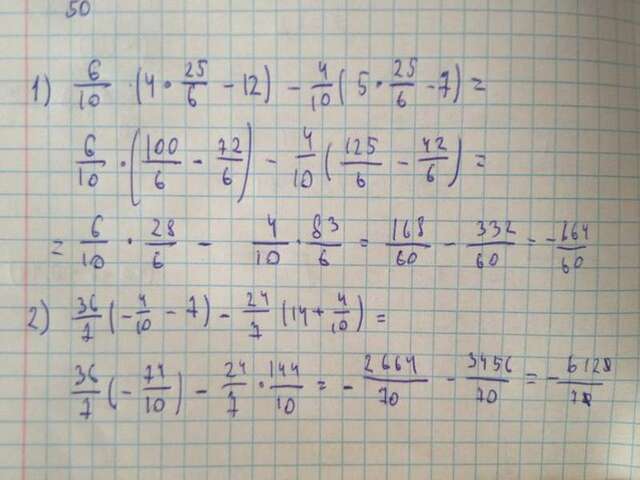 50
1) 6/10 · (4 · 25/6 - 12) - 4/10 (5 · 25/6 - 7) =
6/10 · (100/6 - 72/6) - 4/10 (125/6 - 42/6) =
= 6/10 · 28/6 - 4/10 · 83/6 = 168/60 - 332/60 = -164/60
2) 36/7 (-4/10 - 7) - 24/7 (14 + 4/10) =
36/7 (-74/10) - 24/7 · 144/10 = -2664/70 - 3456/70 = -6120/70